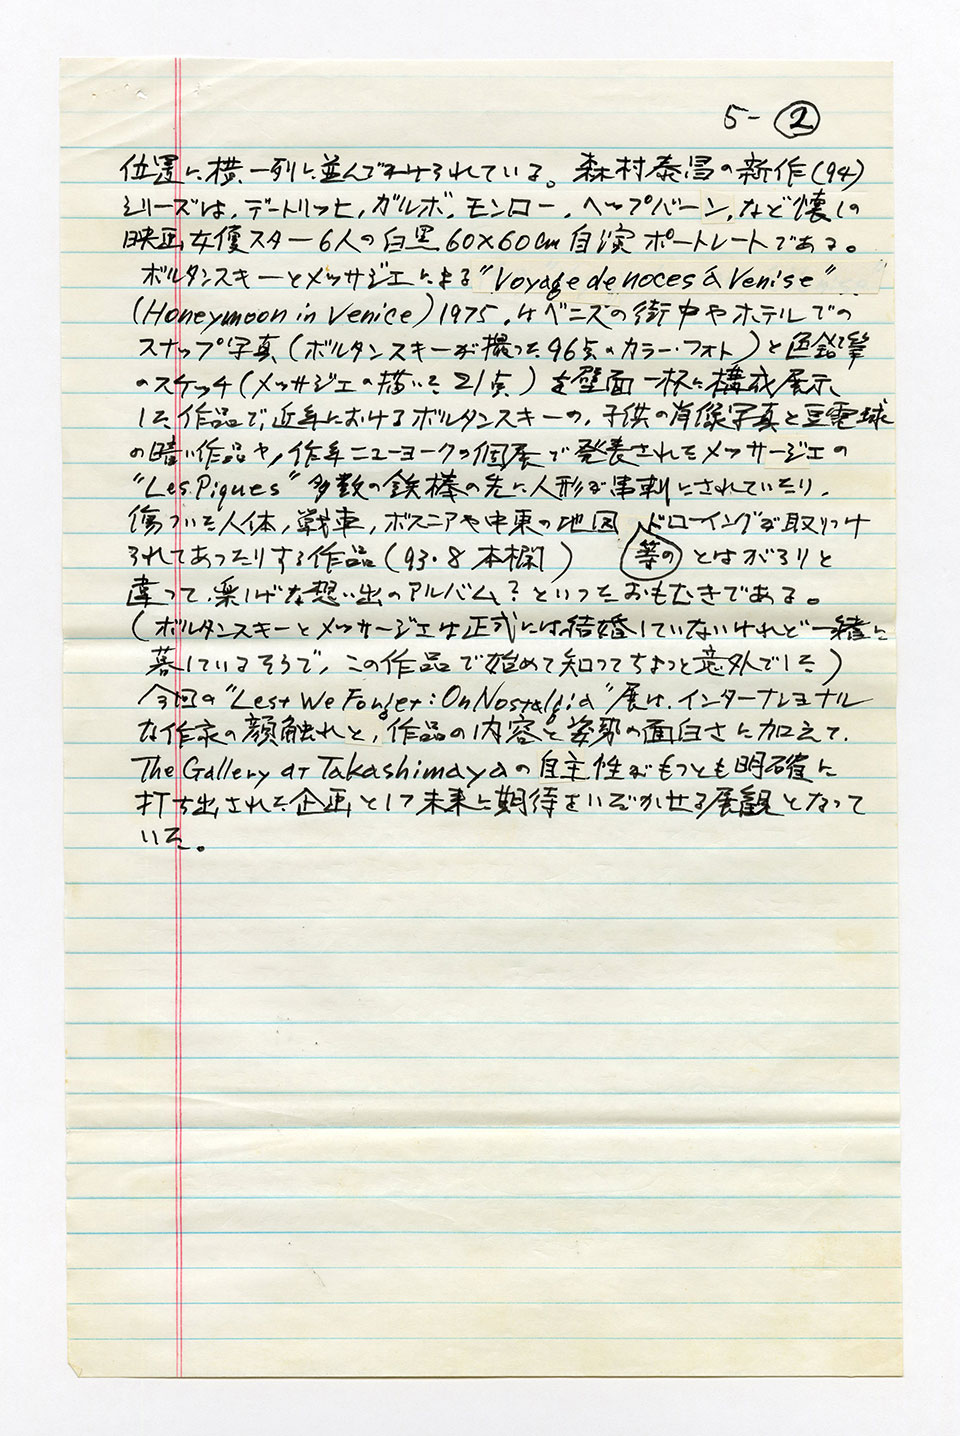 5-②
位置に横一列に並んでかけられている。森村泰昌の新作(94)
シリーズは，デートリッヒ，ガルボ，モンロー，ヘップバーン，など懐しの
映画女優スター6人の白黒60×60cm自演ポートレートである。
ボルタンスキーとメッサジェによる"Voyage de noces à Venise"
(Honeymoon in Venice) 1975，はベニスの街中やホテルでの
スナップ写真(ボルタンスキーが撮った96点のカラー・フォト)と色鉛筆
のスケッチ(メッサジェの描いた21点)を壁面一杯に構成展示
した作品で，近年におけるボルタンスキーの，子供の肖像写真と豆電球
の暗い作品や，昨年ニューヨークの個展で発表されたメッサージェの
"Les Piques"多数の鉄棒の先に人形が串刺にされていたり，
傷ついた人体，戦車，ボスニアや中東の地図 ドローイングが取りつけ
られてあったりする作品(93・8本欄) 等の とはがらりと
違って，楽しげな想い出のアルバム？といったおもむきである。
(ボルタンスキーとメッサージェは正式には結婚していないけれど一緒に
暮しているそうで，この作品で始めて知ってちょっと意外でした)
今回の"Lest We Forget: On Nostalgia"展は，インターナショナル
な作家の顔触れと，作品の内容と姿勢の面白さに加えて，
The Gallery at Takashimayaの自主性がもっとも明確に
打ち出された企画として未来に期待をいだかせる展観となって
いた。